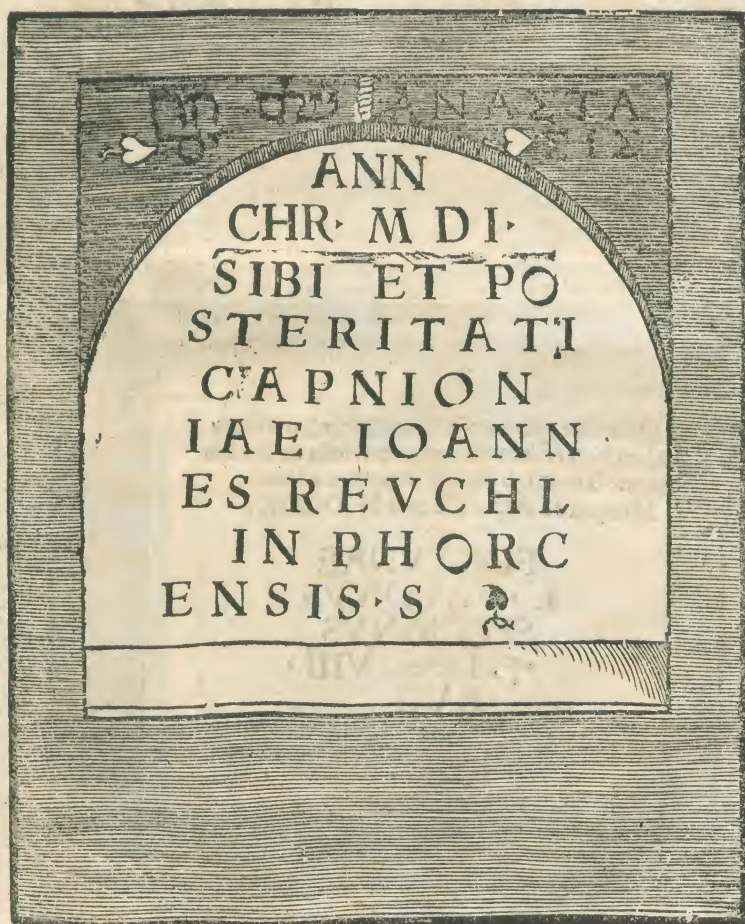 ΑΝΑΣΤΑ
ΣΙΣ
ANN
CHR· M D I·
SIBI ET PO
STERITATI
CAPNION
IAE IOANN
ES REVCHL
IN PHORC
ENSIS·S